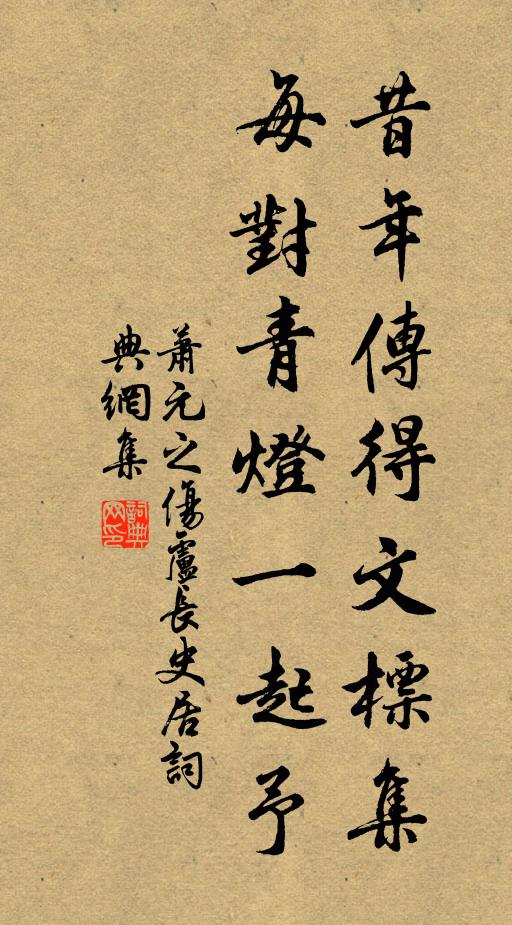 昔年傳得文標集
每對青燈一起予
蕭元之傷盧長史居詞
典網集
詞典
网印